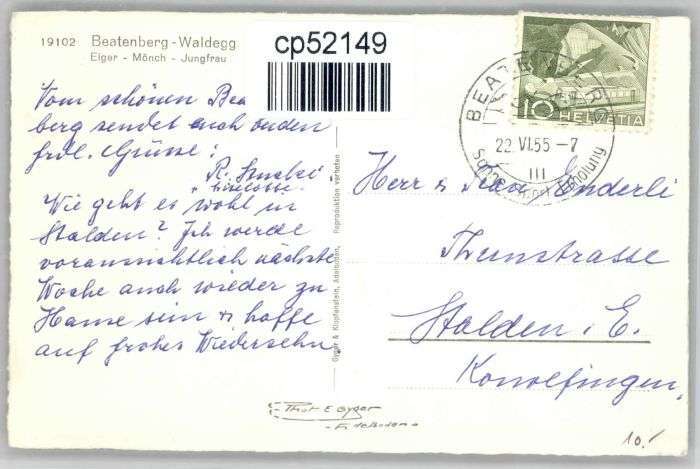 19102 Beatenberg-Waldegg
Eiger - Mönch - Jungfrau
cp52149
10 HELVETIA
BEATENBERG
22.VI.55-7
III
Vom schönen Bea
berg sendet auch
frdl. Grüsse:
R.
Wie geht es wohl in
Stalden? Ich werde
voraussichtlich nächste
Woche auch wieder zu
Hause sein & hoffe
auf frohes Wiedersehn.
Gyger & Klopfenstein, Adelboden. Reproduktion verboten
Herr & Frau Enderli
Thunstrasse
Stalden i. E.
Konolfingen.
Phot E Gyger
Adelboden
10.-